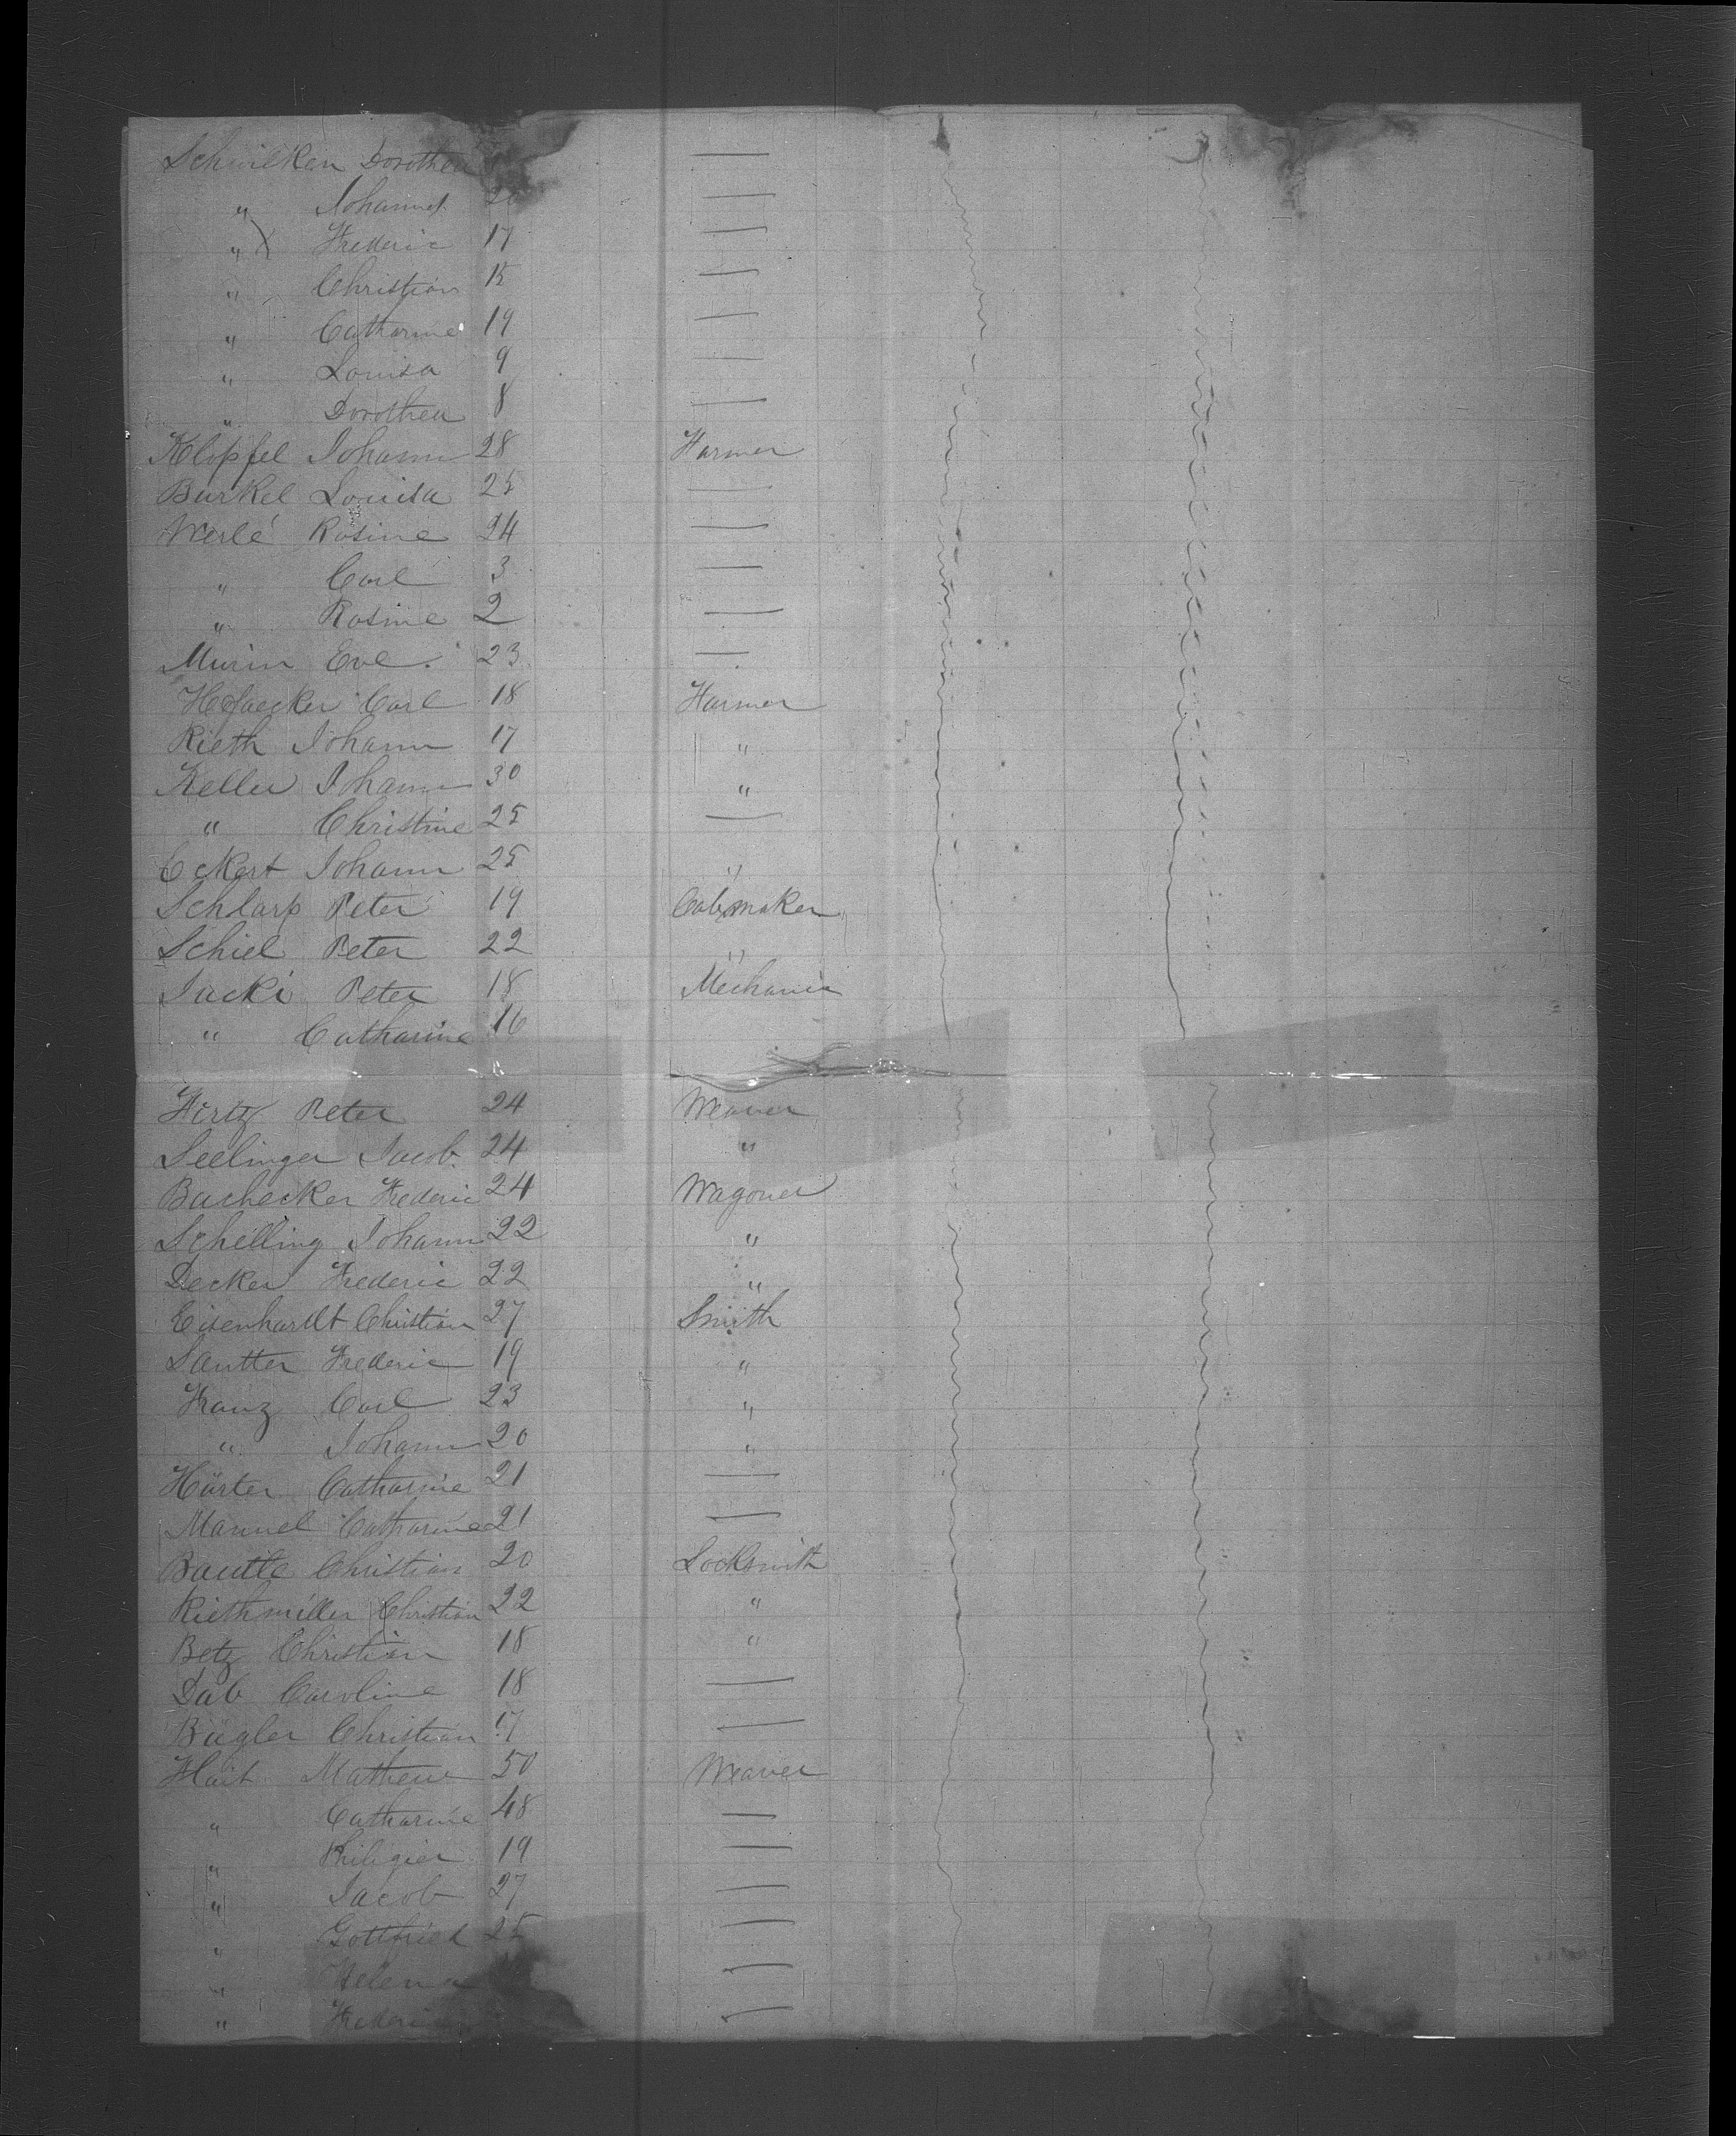 Schwilken Dorothea —
" Johannes 20 —
" X Frederic 17 —
" Christian 15 —
" Catharine 19 —
" Louisa 9 —
" Dorothea 8 —
Klopfel Johann 28 Farmer
Burkel Louisa 25 —
Werlé Rosine 24 —
" Carl 3 —
" Rosine 2 —
Murin Eve. 23 —
Carl 18 Farmer
Rieth Johann 17 "
Keller Johann 30 "
" Christine 25 —
Eckert Johann 25 "
Schlarp Peter 19 Cabmaker
Schiel Peter 22 "
Jacki Peter 18 Mechanic
" Catharine 16
Hirtz Peter 24 Weaver
Seelinger Jacob 24 "
Bachecker Frederic 24 Wagoner
Schelling Johann 22 "
Decker Frederic 22 "
Eisenhardt Christian 27 Smith
Sautter Frederic 19 "
Franz Carl 23 "
" Johann 20 "
Härter Catharine 21 —
Mannel Catharine 21 —
Bautle Christian 20 Locksmith
Riethmiller Christian 22 "
Betz Christian 18 "
Dab Caroline 18 —
Bugler Christian 17 —
Hait Mathew 50 Weaver
" Catharine 48 —
" 19 —
" Jacob 27 —
" Gottfried 25 —
" Helena —
" Frederic —